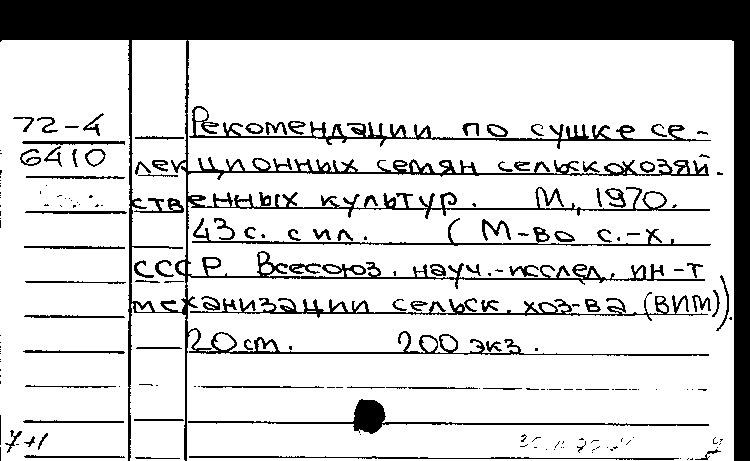 72-4 Рекомендации по сушке се-
6410 лекционных семян сельскохозяй-
ственных культур. М., 1970.
43 с. с ил. (М-во с.-х.
СССР. Всесоюз. науч.-исслед. ин-т
механизации сельск. хоз-ва (ВИМ)).
20 см. 200 экз.
7+1